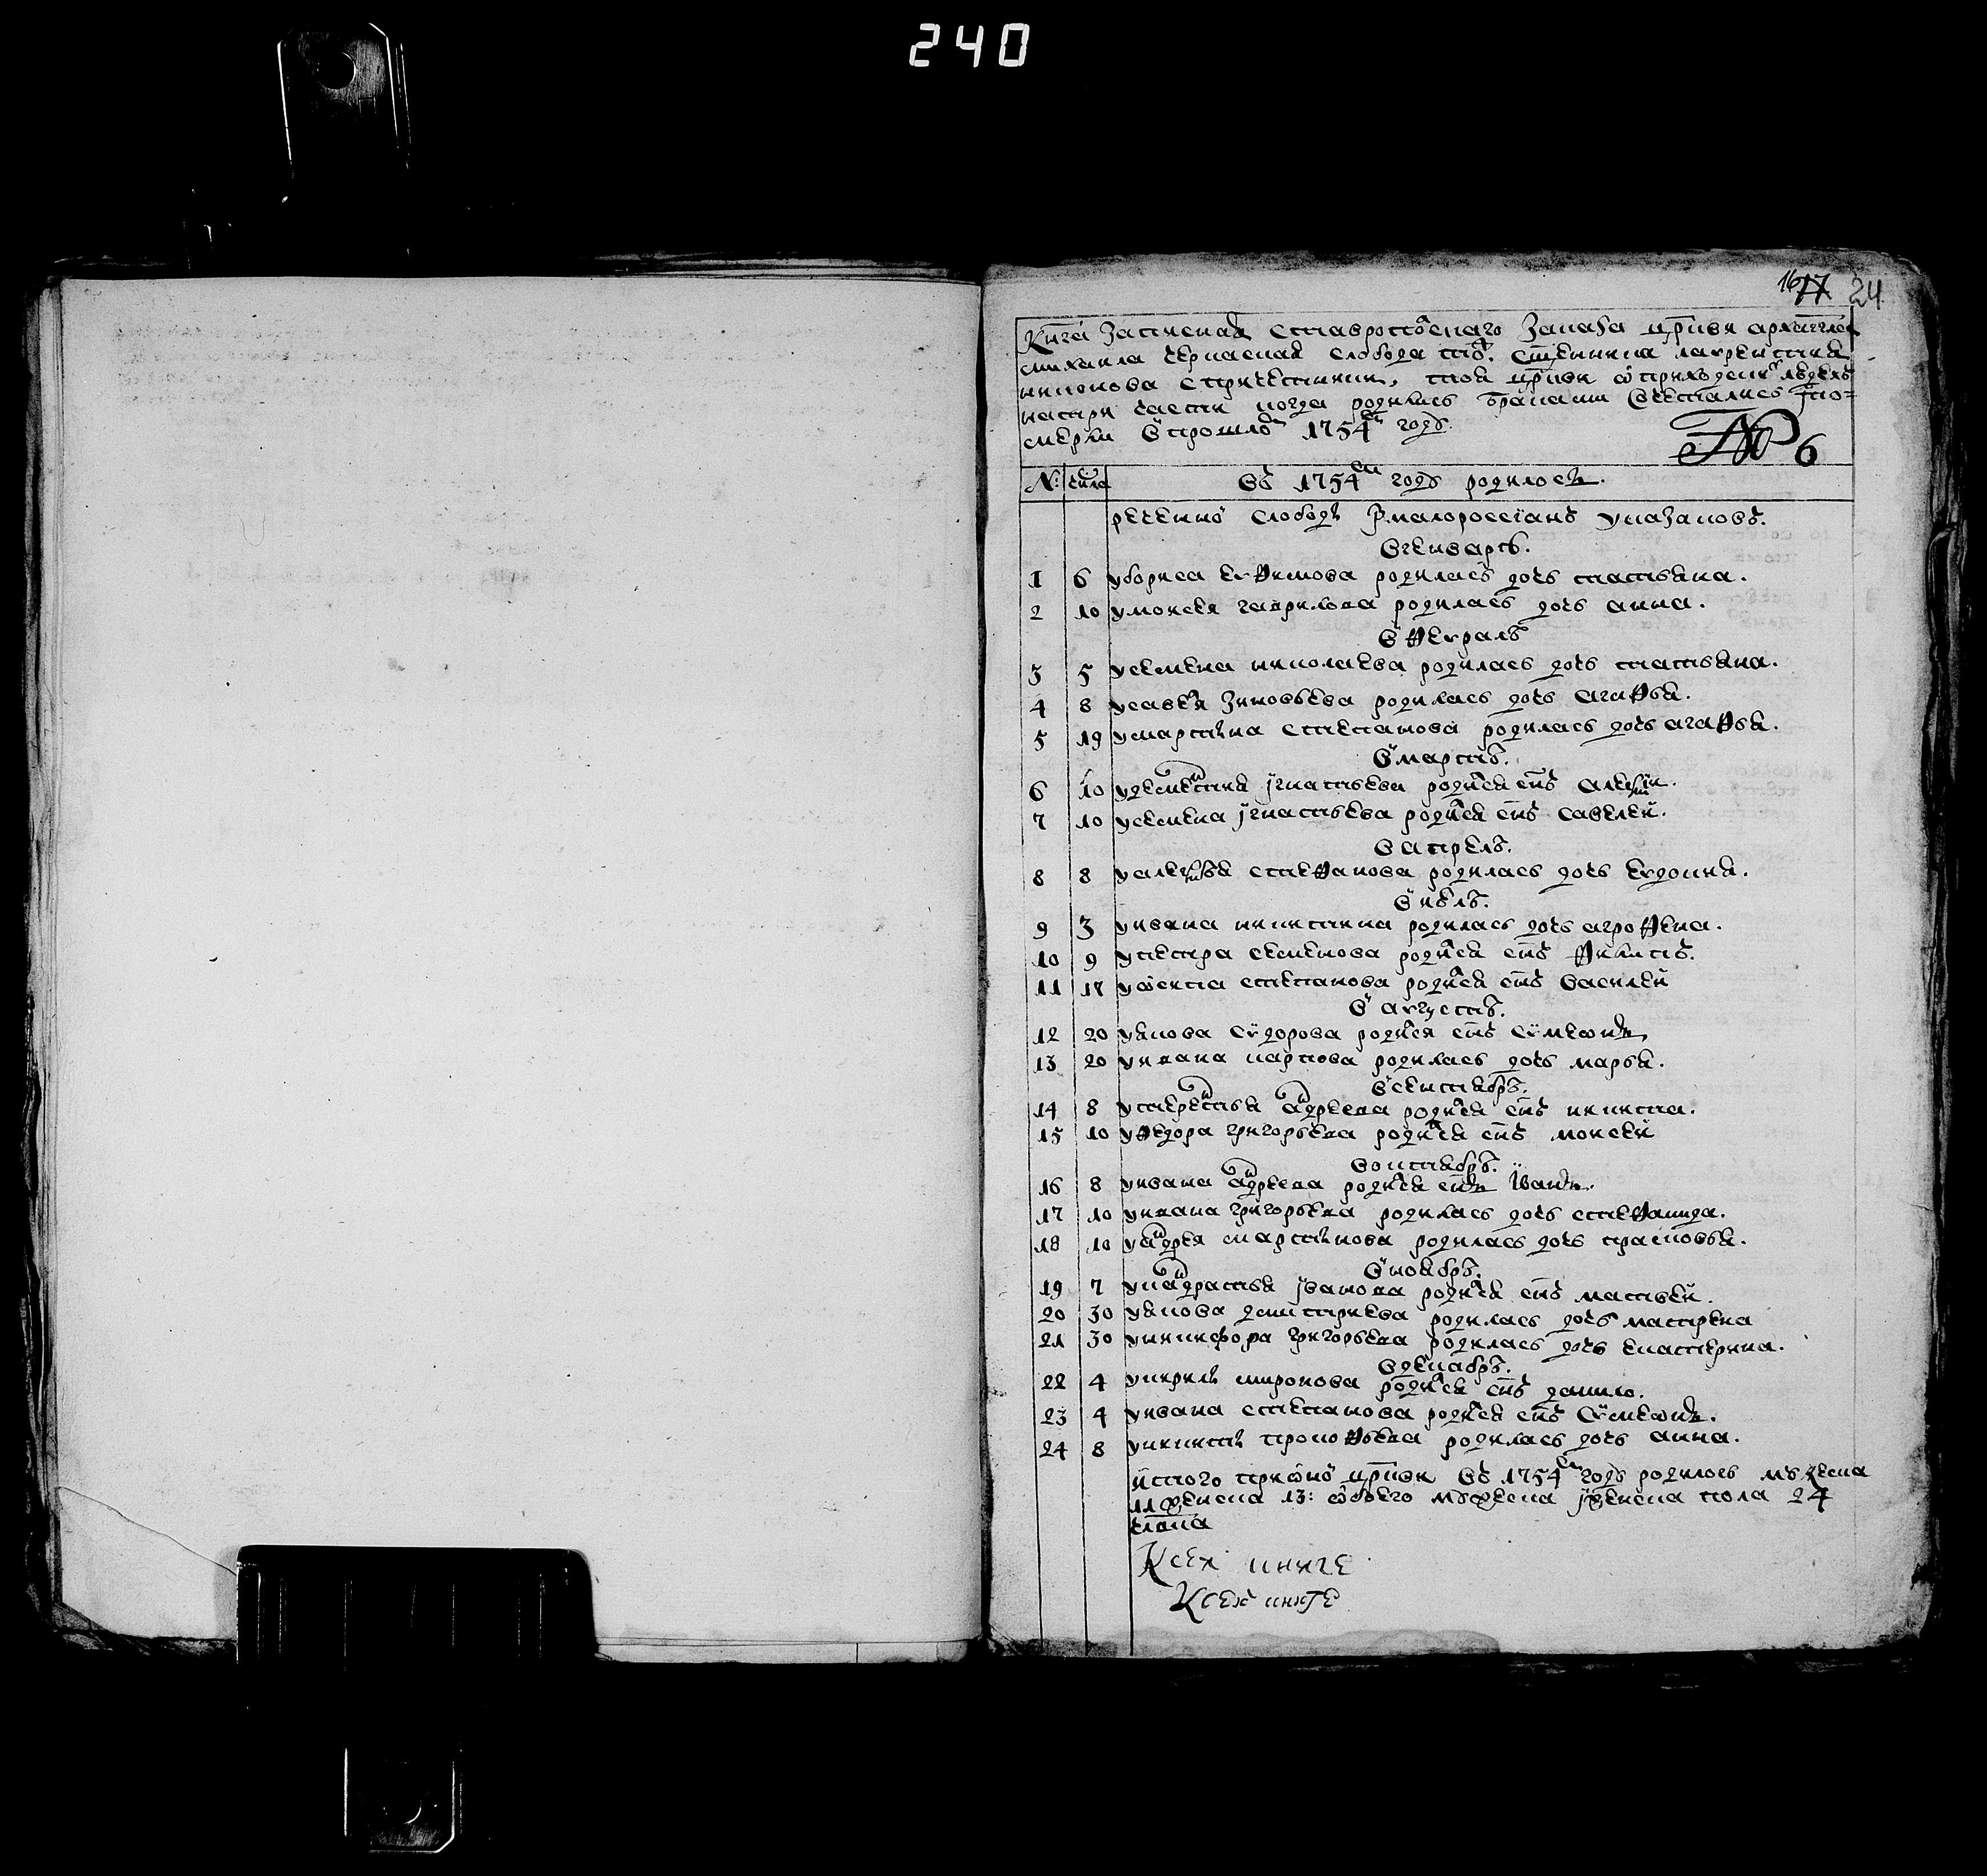 240
16 17 24
Книга записная староосколскаго заказа цркви архаггла
михаила чернаская слобода попа сщенника лаврентия
никонова с причетники, тоя цркви о приходскихъ людехъ
на три части когда родилис браком венчалис і по-
мерли в прошломъ 1754м году.
№ 6
№: число въ 1754м году родилось.
реченной слободы у малороссіянъ у казаковъ.
в генваре.
1 6 у бориса ефимова родилась дочь татьяна.
2 10 у моисея гаврилова родилась дочь анна.
в феврале
3 5 у семена николаева родилась дочь татьяна.
4 8 у савея зиновьева родилась дочь агафья.
5 19 у мартина степанова родилась дочь агафья.
в марте.
6 10 у дементия игнатьева родился снъ алексей.
7 10 у семена игнатьева родился снъ савелей.
в апреле.
8 8 у алексея стефанова родилась дочь евдокия.
в июле.
9 3 у ивана никитина родилась дочь агрофена.
10 9 у петра семенова родился снъ филипъ.
11 17 у осипа степанова родился снъ василей
в августе.
12 20 у якова сидорова родился снъ сумеонъ
13 20 у ивана карпова родилась дочь марья.
в сентябре.
14 8 у терентья андреева родился снъ никита.
15 10 у федора григорьева родился снъ моисей
в октябре.
16 8 у ивана андреева родился снъ иванъ.
17 10 у ивана григорьева родилась дочь стефанида.
18 10 у андрея мартинова родилась дочь прасковья.
в ноябре.
19 7 у кадратья іванова родился снъ матвей.
20 30 у якова дмитриева родилась дочь матрена
21 30 у никифора григорьева родилась дочь екатерина.
в декабре.
22 4 у кирилы миронова родился снъ данило.
23 4 у ивана степанова родился снъ сумеонъ.
24 8 у никиты прокофьева родилась дочь анна.
итого при оной цркви въ 1754м году родилось мужеска
11 женска 13: обоего мужеска і женска пола 24
члвка
К сей книге
К сей книге